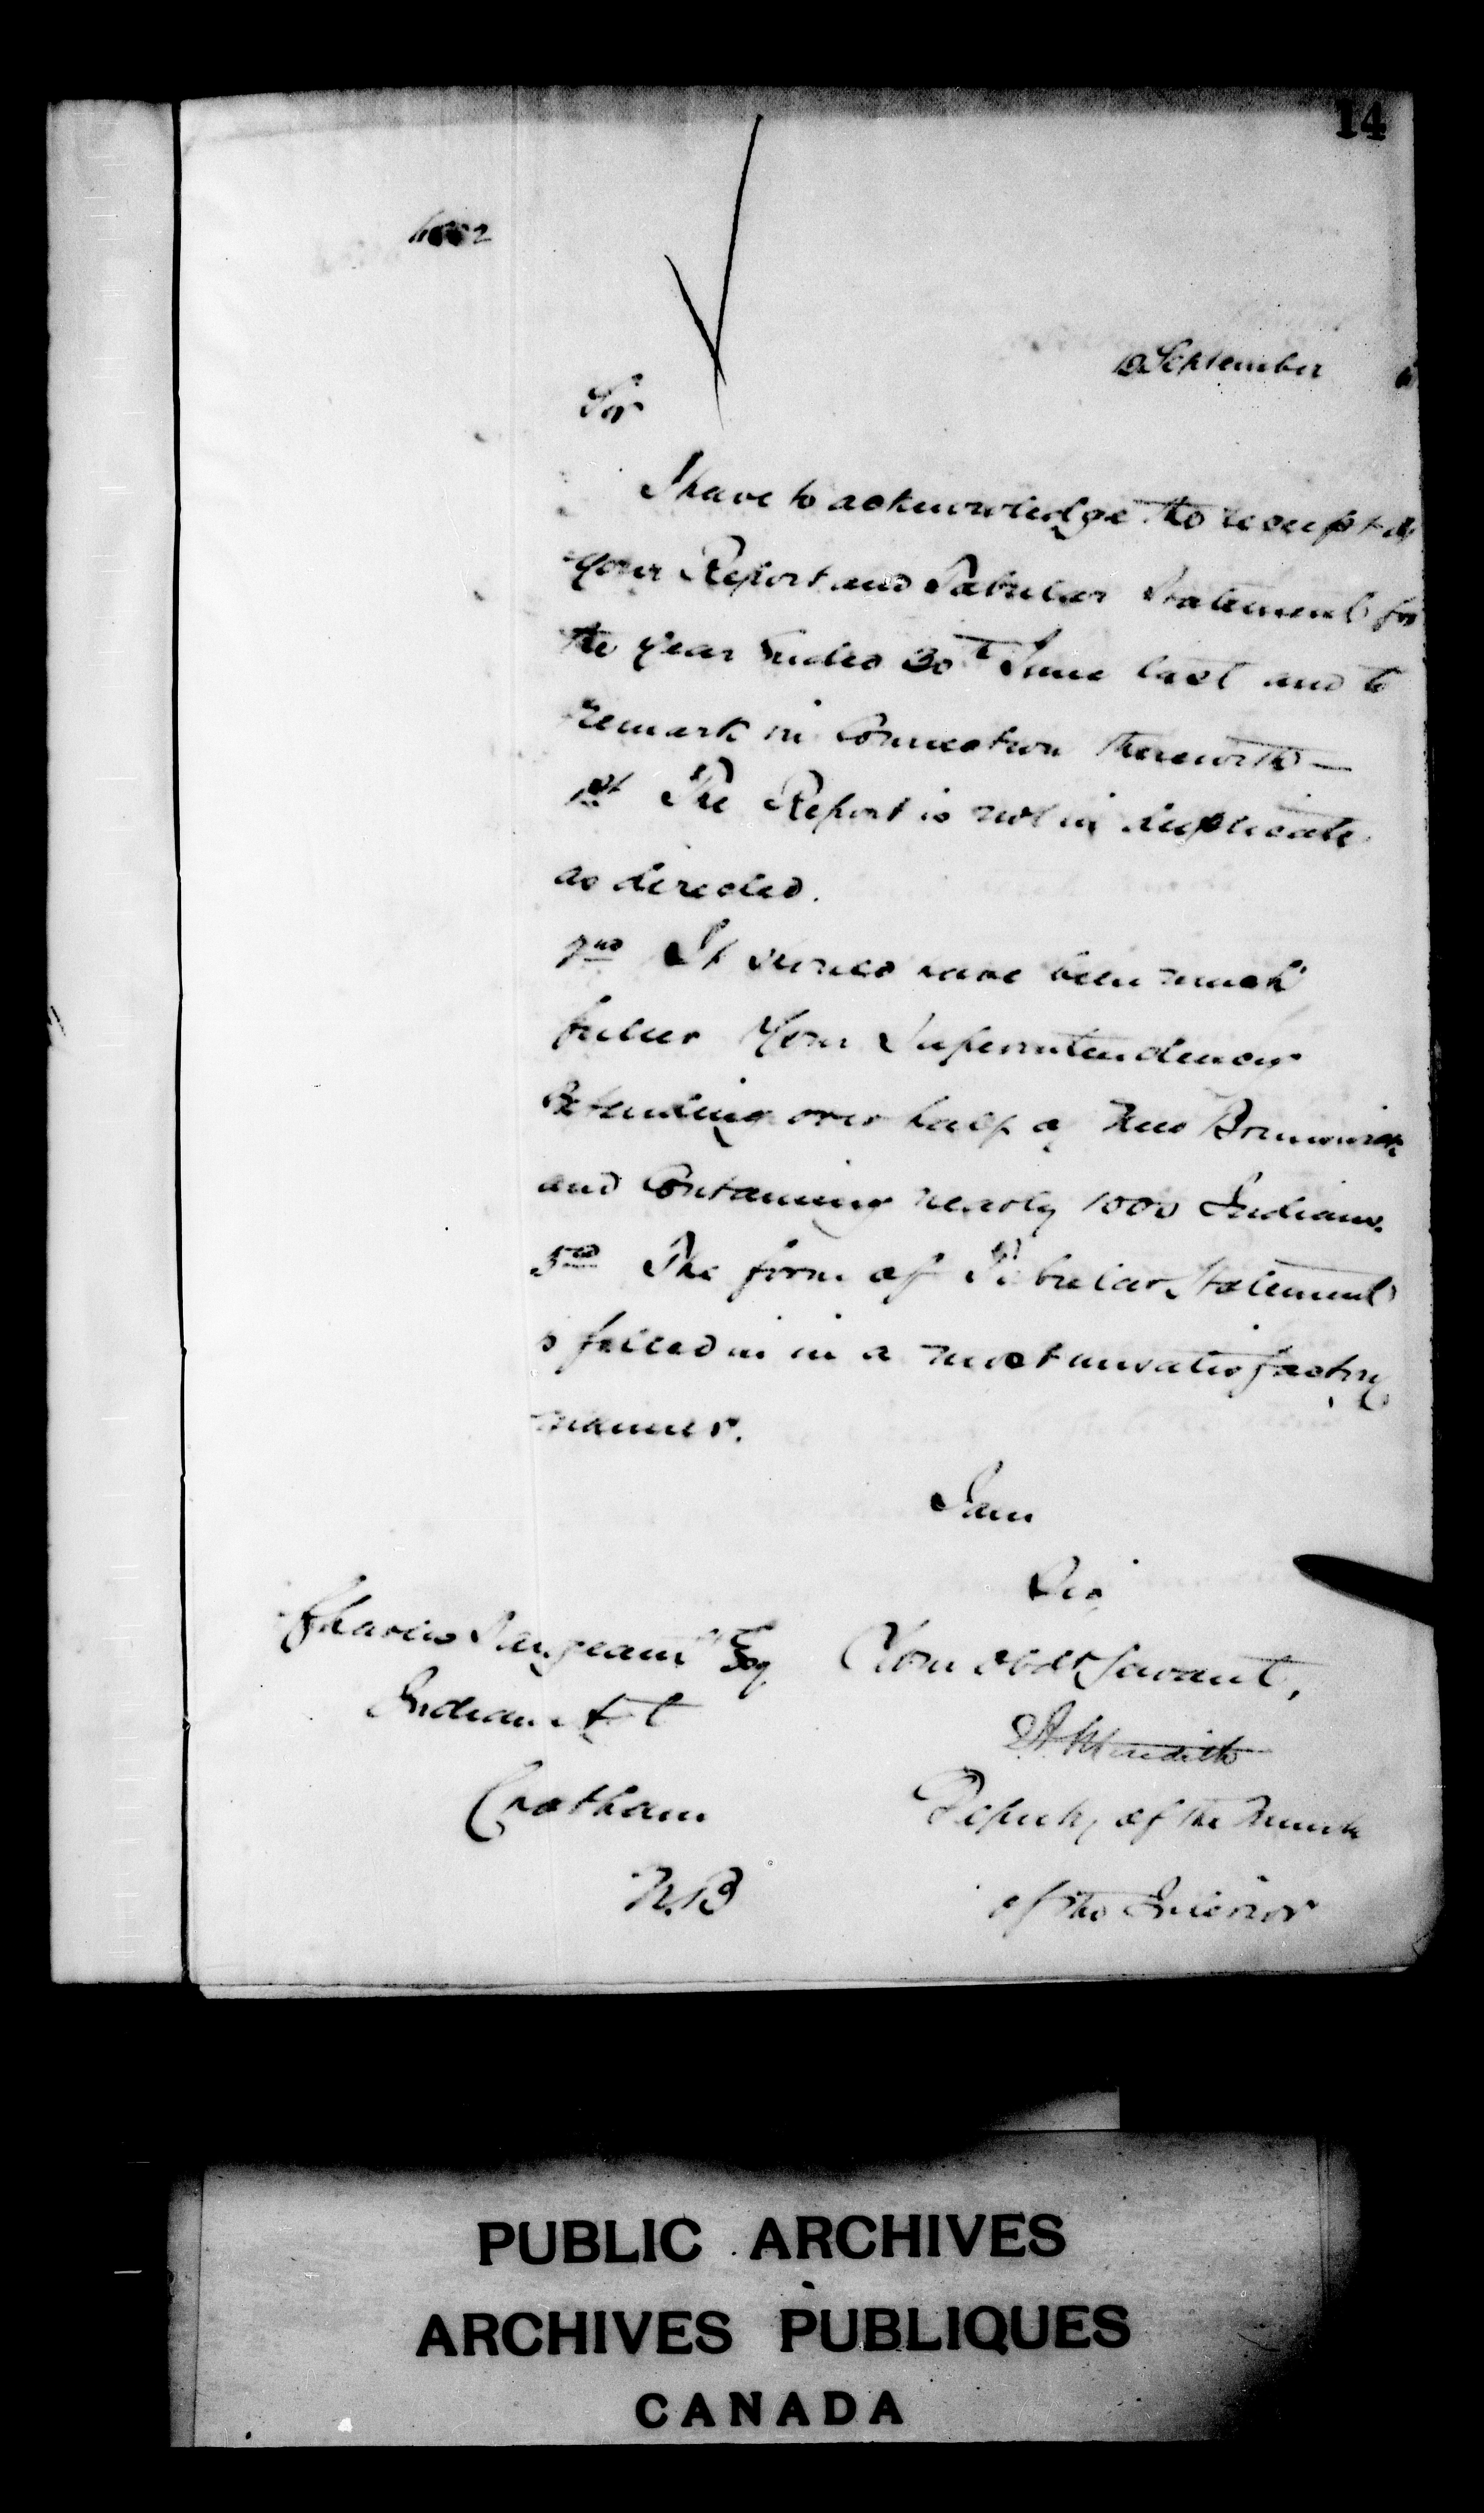 14
September
Sir
I have to acknowledge the receipt of
your Report and Tabular Statement for
the year Ended 30th June last and to
remark in Connection therewith —
1st The Report is not in duplicate
as directed.
2nd It should have been much
fuller Your Superintendency
Extending over half of New Brunswick
and Containing nearly 1000 Indians.
3rd The form of Tabular Statement
is filled in in a most unsatisfactory
manner.
I am
Sir
Your obdt Servant,
Meredith
Deputy of the Minister
of the Interior
Charles Sargeant Esq
Indian Agt
Chatham
N.B
PUBLIC ARCHIVES
ARCHIVES PUBLIQUES
CANADA